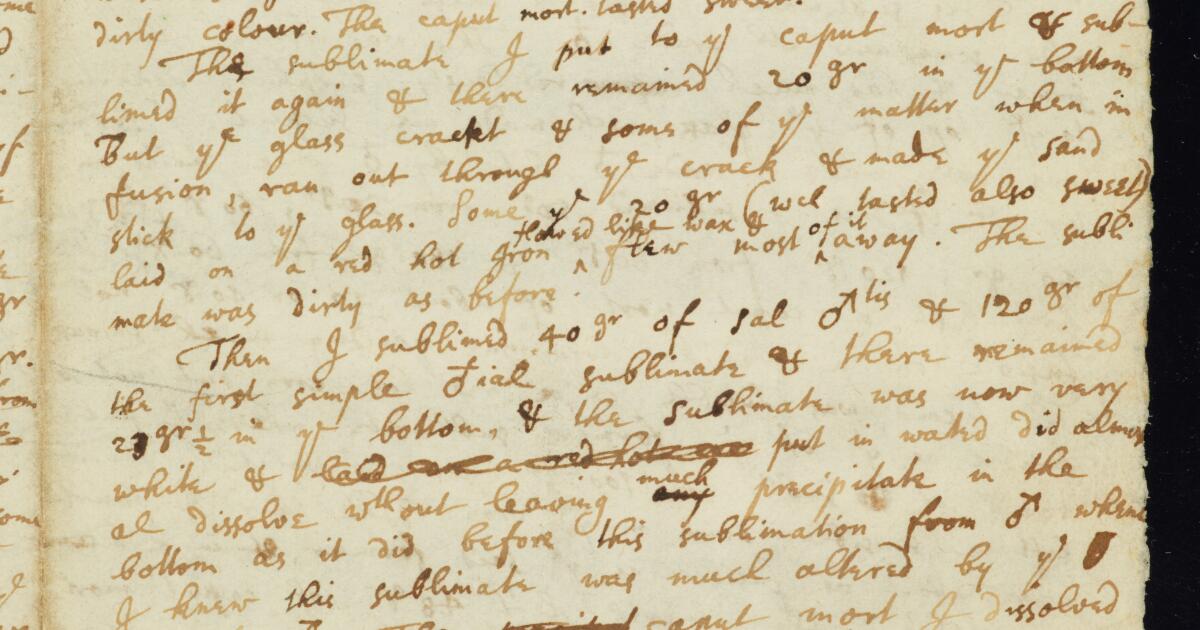 dirty colour. The caput mort. tasted sweet.
The sublimate I put to yͤ caput mort & sub-
limed it again & there remained 20 gr in yͤ bottom
But yͤ glass crackt & some of yͤ matter when in
fusion, ran out through yͤ crack & made yͤ sand
stick to yͤ glass. Some yͤ 20 gr (wch tasted also sweet)
laid on a red hot Iron flowed like wax & flew most of it away. The subli
mate was dirty as before.
Then I sublimed 40 gr of sal ♂tis & 120 gr of
the first simple ♁ial sublimate & there remained
gr ½ in yͤ bottom, & the sublimate was now very
white & laid on a red hot put in wated did almost
al dissolve wthout leaving any much precipitate in the
bottom as it did before this sublimation from ♂ whence
I knew this sublimate was much altered by yͤ
The caput mort I dissolved